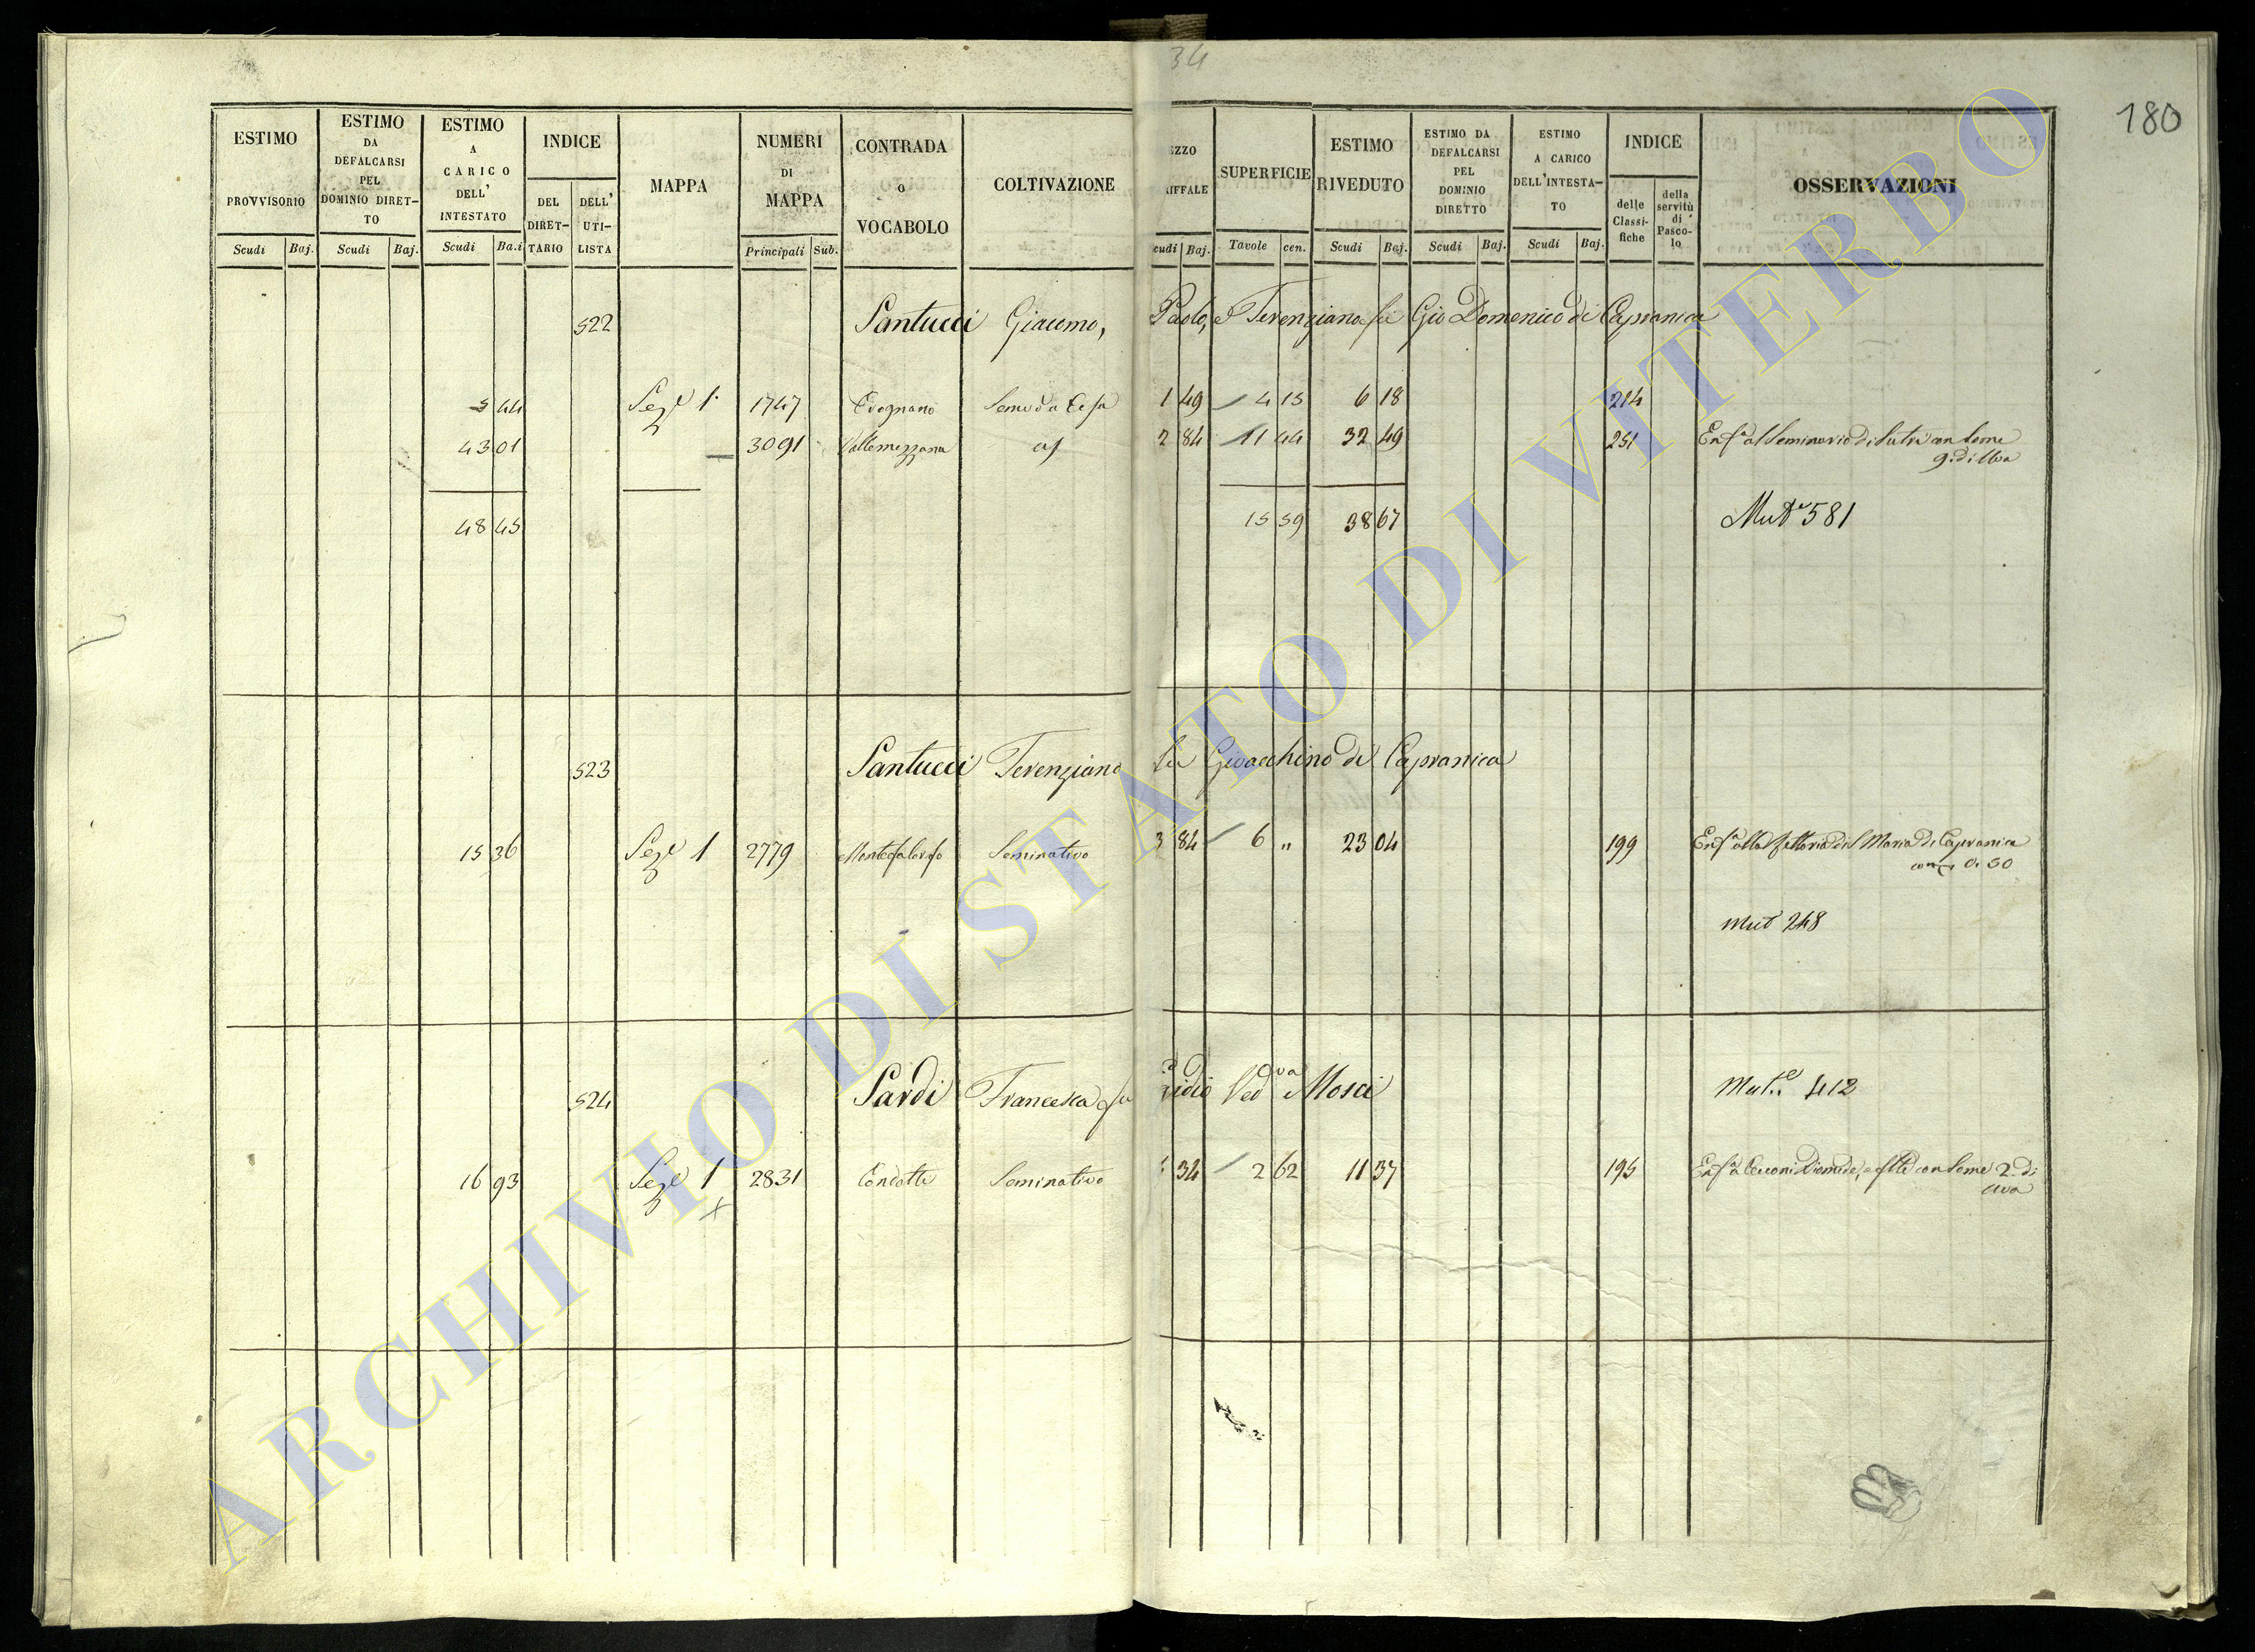 34
180
ESTIMO PROVVISORIO Scudi Baj.
ESTIMO DA DEFALCARSI PEL DOMINIO DIRET-TO Scudi Baj.
ESTIMO A CARICO DELL' INTESTATO Scudi Ba.i
INDICE DEL DIRET-TARIO DELL' UTI-LISTA
MAPPA
NUMERI DI MAPPA Principali Sub.
CONTRADA O VOCABOLO
COLTIVAZIONE
EZZO RIFFALE cudi Baj.
SUPERFICIE Tavole cen.
ESTIMO RIVEDUTO Scudi Baj.
ESTIMO DA DEFALCARSI PEL DOMINIO DIRETTO Scudi Baj.
ESTIMO A CARICO DELL'INTESTA-TO Scudi Baj.
INDICE delle Classi-fiche della servitù di Pasco-lo
OSSERVAZIONI
522 Santucci Giacomo, Paolo, e Terenziano fu Gio Domenico di Capranica
5 44 Sez.e 1. 1747 Sem 1 49 4 15 6 18 214
43 01 3091 Vallemezzana 2 84 11 44 32 49 251 Enf.a al Seminario di Sutri con Some
9. di Uva
48 45 15 59 38 67 Mut.e 581
523 Santucci Terenziano fu Gioacchino di Capranica
15 36 Sez.e 1 2779 Seminativo 3 84 6 „ 23 04 199 Enf.a alla Fattoria di S Maria di Capranica
0. 50
Mut 248
524 Sardi Francesca fu gidio Ved.va Mosci Mut.e 412
16 93 Sez.e 1 2831 Condotte Seminativo 34 2 62 11 37 195 Enf.a Cecconi Diomede, e con Some 2. di
uva
ARCHIVIO DI STATO DI VITERBO